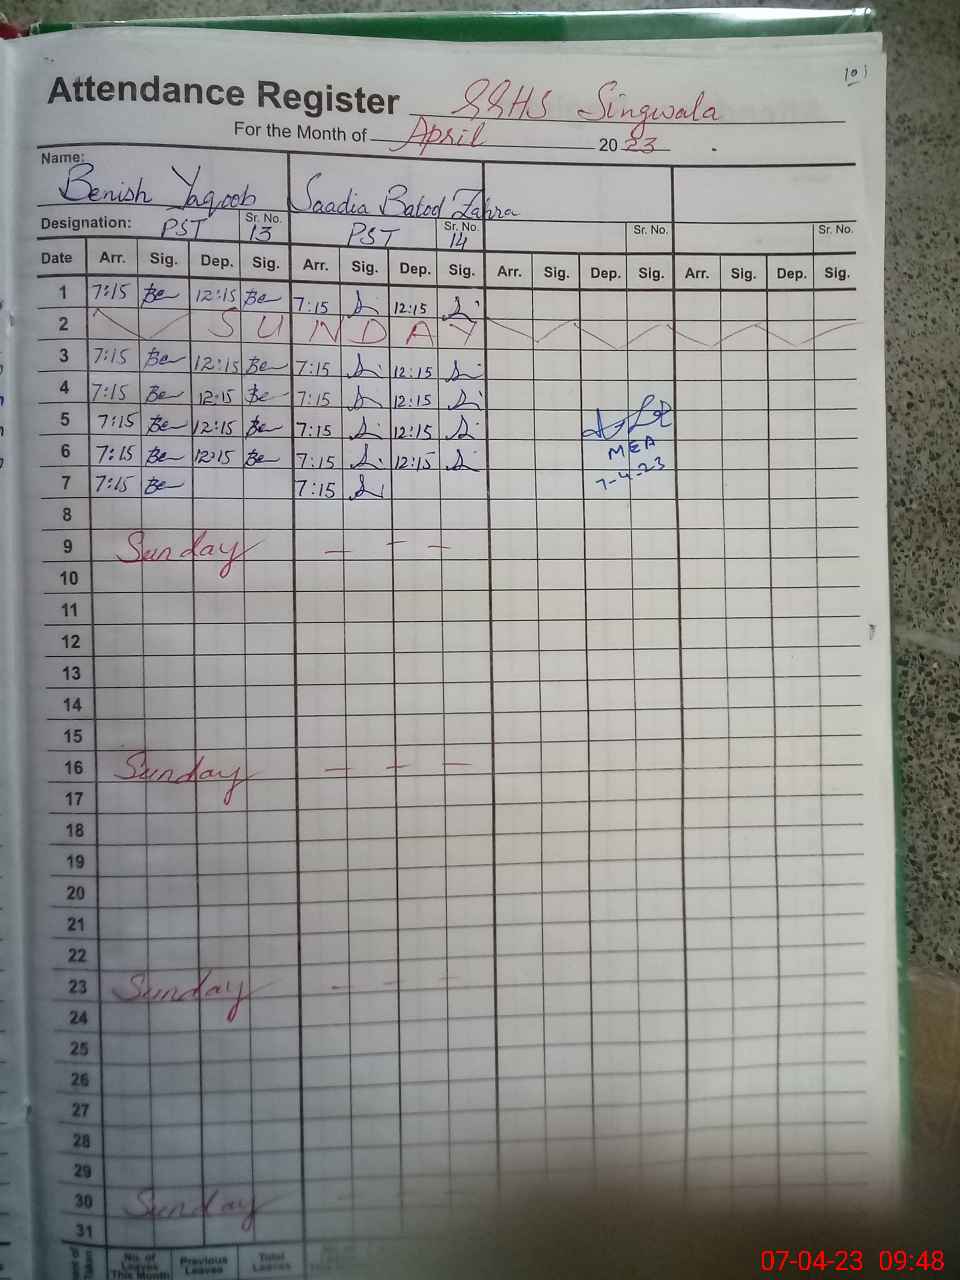 101
Attendance Register GGHS Singwala
For the Month of April 2023
Name:
Benish Yaqoob Saadia Batool Zahra
Designation: PST Sr. No. 13 PST Sr. No. 14 Sr. No. Sr. No.
Date Arr. Sig. Dep. Sig. Arr. Sig. Dep. Sig. Arr. Sig. Dep. Sig. Arr. Sig. Dep. Sig.
1 7:15 Be 12:15 Be 7:15 12:15
2 SUNDAY
3 7:15 Be 12:15 Be 7:15 12:15
4 7:15 Be 12:15 Be 7:15 12:15
5 7:15 Be 12:15 Be 7:15 12:15
6 7:15 Be 12:15 Be 7:15 12:15 MEA
7 7:15 Be 7:15 7-4-23
8
9 Sunday — — —
10
11
12
13
14
15
16 Sunday — — —
17
18
19
20
21
22
23 Sunday — — —
24
25
26
27
28
29
30 Sunday
31
No. of Leaves This Month Previous Leaves Total Leaves
07-04-23 09:48